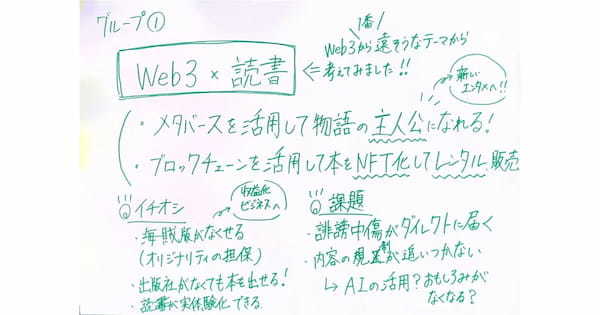 グループ①
1番
Web3 × 読書
⇐ Web3から遠そうなテーマから
考えてみました!!
新しい
エンタメへ!!
・メタバースを活用して物語の主人公になれる!
・ブロックチェーンを活用して本をNFT化してレンタル、販売
イチオシ
収益化
ビジネスへ
・海賊版がなくせる
(オリジナリティの担保)
・出版社がなくても本を出せる!
・読書が実体験化できる
課題
・誹謗中傷がダイレクトに届く
・内容の規制が追いつかない
↳ AIの活用?おもしろみが
なくなる?